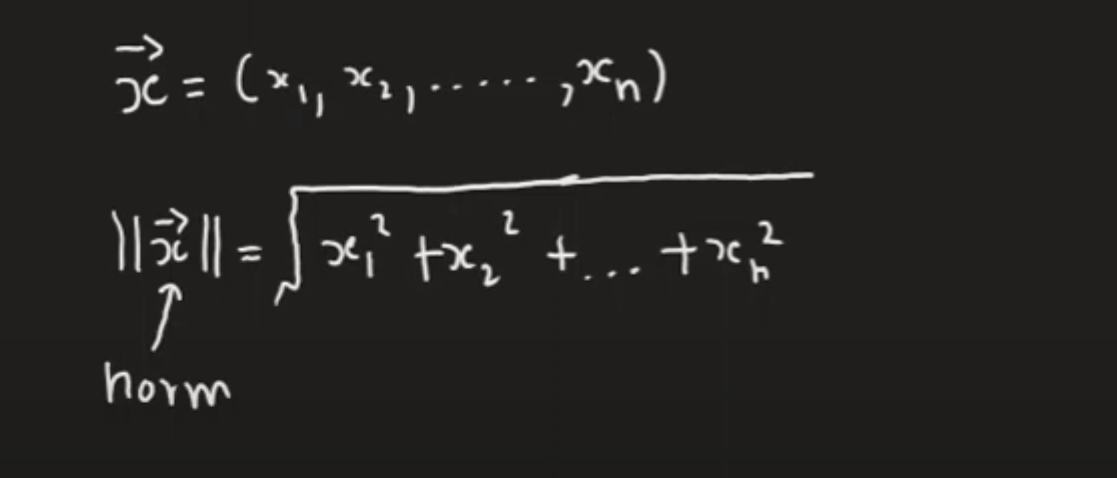 x⃗ = (x₁, x₂, ......, xₙ)
||x⃗|| = √(x₁² + x₂² + ... + xₙ²)
↑
norm